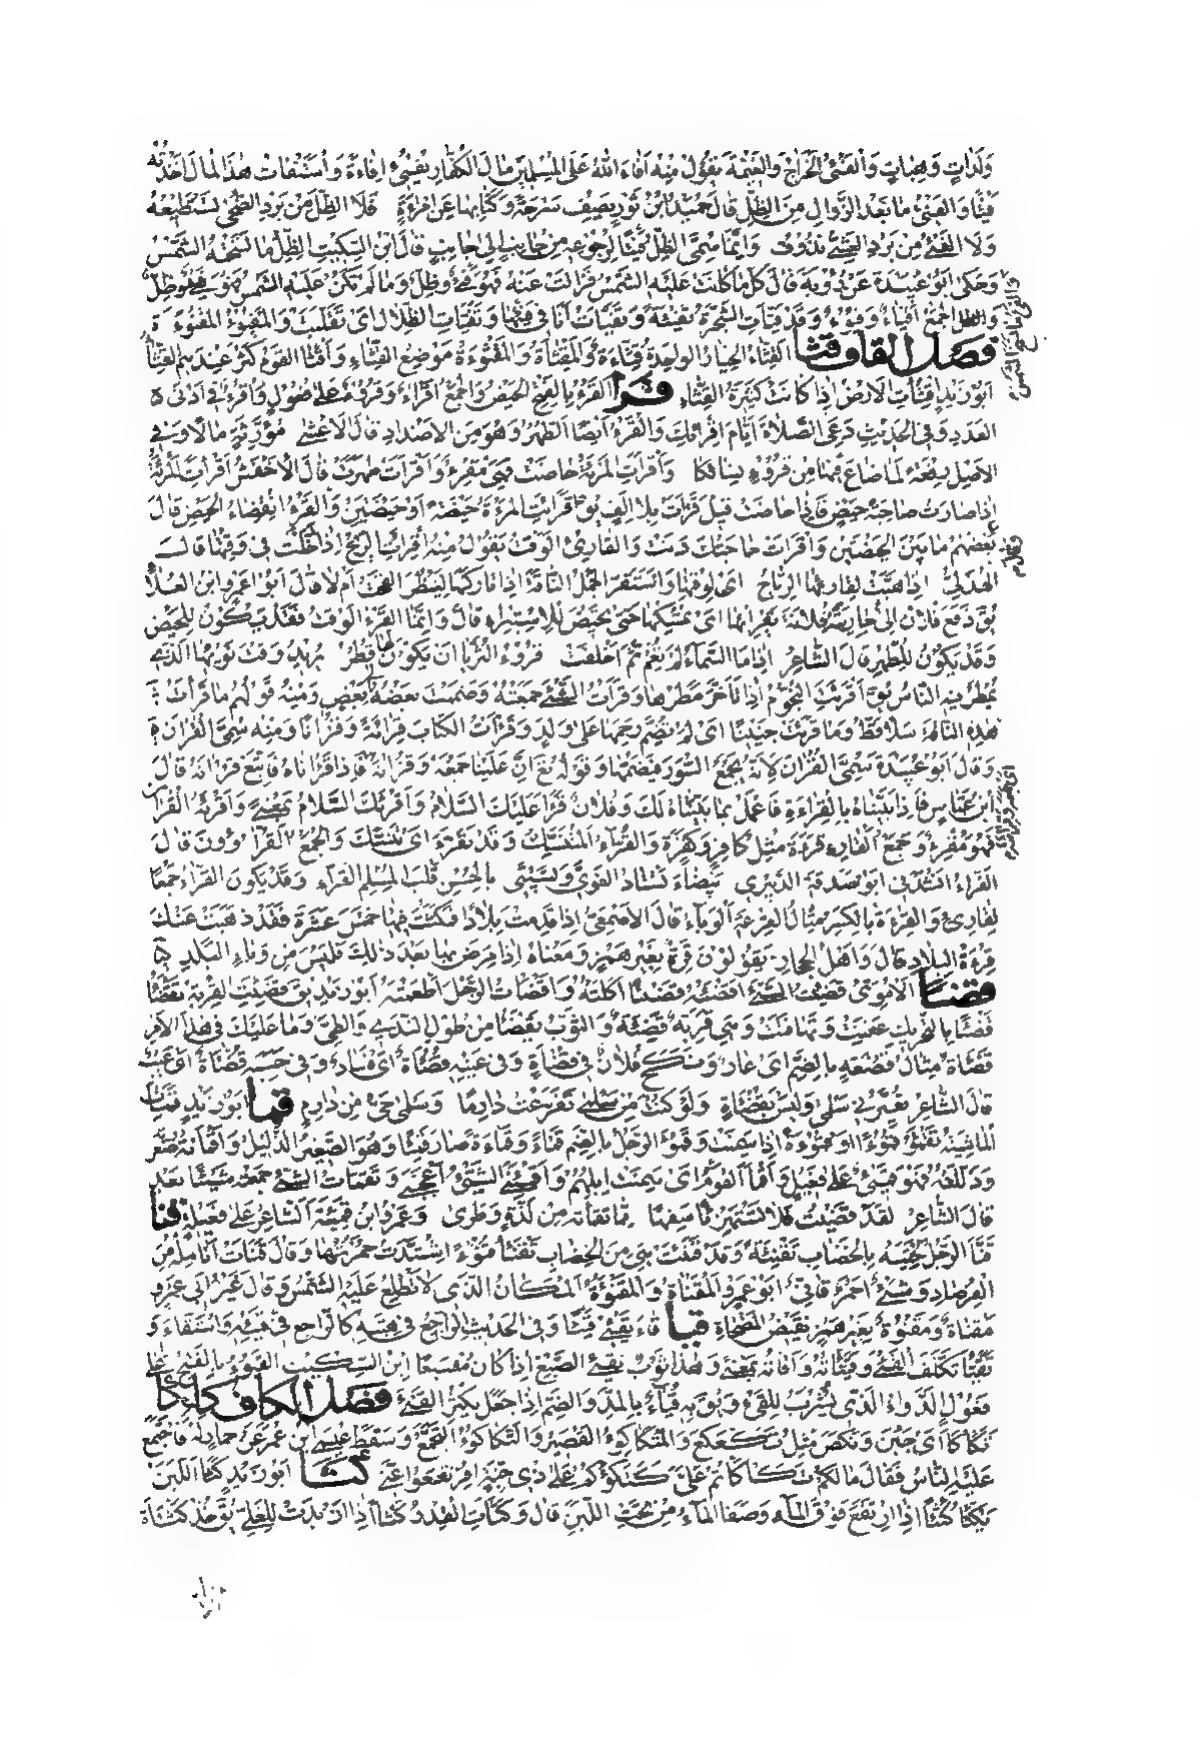 وَلَذَّاتٍ وَهِبَاتٍ وَالفَيْءُ الخَرَاجُ وَالغَنِيمَةُ تَقُوْلُ مِنْهُ اَفَاءَ اللهُ عَلَى المُسْلِمِيْنَ مَالَ الكُفَّارِ يُفِيْئُ اِفَاءَةً وَاسْتَفَأْتُ هٰذَا المَالَ اَخَذْتُهُ
فَيْئًا وَالفَيْءُ مَا بَعْدَ الزَّوَالِ مِنَ الظِّلِّ قَالَ حُمَيْدُ بْنُ ثَوْرٍ يَصِفُ سَرْحَةً وَكَنَى بِهَا عَنِ امْرَأَةٍ فَلَا الظِّلُّ مِنْ بَرْدِ الضُّحَى تَسْتَطِيْعُهُ
وَلَا الفَيْءُ مِنْ بَرْدِ العَشِيِّ تَذُوْقُ وَاِنَّمَا سُمِّيَ الظِّلُّ فَيْئًا لِرُجُوْعِهِ مِنْ جَانِبٍ اِلَى جَانِبٍ قَالَ ابْنُ السِّكِّيْتِ الظِّلُّ مَا نَسَخَتْهُ الشَّمْسُ
وَحَكَى اَبُوْ عُبَيْدَةَ عَنْ رُؤْبَةَ قَالَ كُلُّ مَا كَانَتْ عَلَيْهِ الشَّمْسُ فَزَالَتْ عَنْهُ فَهُوَ فَيْءٌ وَظِلٌّ وَمَا لَمْ تَكُنْ عَلَيْهِ الشَّمْسُ فَهُوَ ظِلٌّ
وَالجَمْعُ اَفْيَاءٌ وَفُيُوْءٌ وَقَدْ فَيَّأَتِ الشَّجَرَةُ تَفْيِئَةً وَتَفَيَّأْتُ اَنَا فِي فَيْئِهَا وَتَفَيَّأَتِ الظِّلَالُ اَيْ تَقَلَّبَتْ وَالمَفْيُوْءَةُ
فَصْلُ القَافِ قثأ القِثَّاءُ الخِيَارُ الوَاحِدَةُ قِثَّاءَةٌ وَالمَقْثَأَةُ وَالمَقْثُوَةُ مَوْضِعُ القِثَّاءِ وَاَقْثَأَ القَوْمُ كَثُرَ عِنْدَهُمُ القِثَّاءُ
اَبُوْ زَيْدٍ اَقْثَأَتِ الاَرْضُ اِذَا كَانَتْ كَثِيْرَةَ القِثَّاءِ قرأ القَرْءُ بِالفَتْحِ الحَيْضُ وَالجَمْعُ اَقْرَاءٌ وَقُرُوْءٌ عَلَى فُعُوْلٍ وَاَقْرُؤٌ فِي اَدْنَى
العَدَدِ وَفِي الحَدِيْثِ دَعِي الصَّلَاةَ اَيَّامَ اَقْرَائِكِ وَالقَرْءُ اَيْضًا الطُّهْرُ وَهُوَ مِنَ الاَضْدَادِ قَالَ الاَعْشَى مُوَرِّثَةٍ مَالًا وَفِي
الاَصْلِ رِفْعَةً لِمَا ضَاعَ فِيْهَا مِنْ قُرُوْءِ نِسَائِكَا وَاَقْرَأَتِ المَرْأَةُ حَاضَتْ فَهِيَ مُقْرِئٌ وَاَقْرَأَتْ طَهُرَتْ قَالَ الاَخْفَشُ اَقْرَأَتِ المَرْأَةُ
اِذَا صَارَتْ صَاحِبَةَ حَيْضٍ فَاِذَا حَاضَتْ قِيْلَ قَرَأَتْ بِلَا اَلِفٍ يُقَ قَرَأَتِ المَرْأَةُ حَيْضَةً اَوْ حَيْضَتَيْنِ وَالقَرْءُ انْقِضَاءُ الحَيْضِ قَالَ
بَعْضُهُمْ مَا بَيْنَ الحَيْضَتَيْنِ وَاَقْرَأَتْ حَاجَتُكَ دَنَتْ وَالقَارِئُ الوَقْتُ تَقُوْلُ مِنْهُ اَقْرَأَتِ الرِّيْحُ اِذَا دَخَلَتْ فِي وَقْتِهَا قَالَ
الهُذَلِيُّ اِذَا هَبَّتْ لِقَارِئِهَا الرِّيَاحُ اَيْ لِوَقْتِهَا وَاسْتَقْرَأَ الجَمَلُ النَّاقَةَ اِذَا تَارَكَهَا لِيَنْظُرَ اَلَقِحَتْ اَمْ لَا قَالَ اَبُوْ عَمْرِو ابْنُ العَلَاءِ
يُقَ دَفَعَ فُلَانٌ اِلَى فُلَانَةَ جَارِيَتَهُ تُقَرِّئُهَا اَيْ تُمْسِكُهَا حَتَّى تَحِيْضَ لِلاِسْتِبْرَاءِ قَالَ وَاِنَّمَا القَرْءُ الوَقْتُ فَقَدْ يَكُوْنُ لِلْحَيْضِ
وَقَدْ يَكُوْنُ لِلطُّهْرِ قَالَ الشَّاعِرُ اِذَا مَا السَّمَاءُ لَمْ تَغِمْ ثُمَّ اَخْلَفَتْ قُرُوْءُ الثُّرَيَّا اَنْ يَكُوْنَ لَهَا قَطْرُ يُرِيْدُ وَقْتَ نَوْئِهَا الَّذِي
يُمْطَرُ فِيْهِ النَّاسُ يُقَ اَقْرَأَتِ النُّجُوْمُ اِذَا تَأَخَّرَ مَطَرُهَا وَقَرَأْتُ الشَّيْءَ جَمَعْتُهُ وَضَمَمْتُ بَعْضَهُ اِلَى بَعْضٍ وَمِنْهُ قَوْلُهُمْ مَا قَرَأَتْ
هٰذِهِ النَّاقَةُ سَلًا قَطُّ وَمَا قَرَأَتْ جَنِيْنًا اَيْ لَمْ تَضُمَّ رَحِمَهَا عَلَى وَلَدٍ وَقَرَأْتُ الكِتَابَ قِرَاءَةً وَقُرْاٰنًا وَمِنْهُ سُمِّيَ القُرْاٰنُ
وَقَالَ اَبُوْ عُبَيْدَةَ سُمِّيَ القُرْاٰنُ لِاَنَّهُ يَجْمَعُ السُّوَرَ فَيَضُمُّهَا وَقَوْلُهُ تَعَ اِنَّ عَلَيْنَا جَمْعَهُ وَقُرْاٰنَهُ فَاِذَا قَرَأْنَاهُ فَاتَّبِعْ قُرْاٰنَهُ قَالَ
ابْنُ عَبَّاسٍ فَاِذَا بَيَّنَّاهُ بِالقِرَاءَةِ فَاعْمَلْ بِمَا بَيَّنَّاهُ لَكَ وَفُلَانٌ قَرَأَ عَلَيْكَ السَّلَامَ وَاَقْرَأَكَ السَّلَامَ بِمَعْنًى وَاَقْرَأَهُ القُرْاٰنَ
فَهُوَ مُقْرِئٌ وَجَمْعُ القَارِئِ قَرَأَةٌ مِثْلُ كَافِرٍ وَكَفَرَةٍ وَالقُرَّاءُ المُتَنَسِّكُ وَقَدْ تَقَرَّأَ اَيْ تَنَسَّكَ وَالجَمْعُ القُرَّاؤُوْنَ قَالَ
الفَرَّاءُ اَنْشَدَنِي اَبُوْ صَدَقَةَ الدُّبَيْرِيُّ بَيْضَاءُ تَصْطَادُ الغَوِيَّ وَتَسْتَبِي بِالحُسْنِ قَلْبَ المُسْلِمِ القُرَّاءِ وَقَدْ يَكُوْنُ القُرَّاءُ جَمْعًا
لِقَارِئٍ وَالقِرْأَةُ بِالكَسْرِ مِثَالُ القِرْعَةِ الوَبَاءُ قَالَ الاَصْمَعِيُّ اِذَا قَدِمْتَ بِلَادًا فَمَكَثْتَ فِيْهَا خَمْسَ عَشْرَةَ فَقَدْ ذَهَبَتْ عَنْكَ
قِرْأَةُ البِلَادِ قَالَ وَاَهْلُ الحِجَازِ يَقُوْلُوْنَ قِرَةٌ بِغَيْرِ هَمْزٍ وَمَعْنَاهُ اِذَا مَرِضَ بِهَا بَعْدَ ذٰلِكَ فَلَيْسَ مِنْ وَبَاءِ البَلَدِ
قضأ الاُمَوِيُّ قَضِئْتُ الشَّيْءَ اَقْضَؤُهُ قَضْئًا اَكَلْتُهُ وَاَقْضَأْتُ الرَّجُلَ اَطْعَمْتُهُ اَبُوْ زَيْدٍ يُقَ قَضِئَتِ القِرْبَةُ تَقْضَأُ
قَضَأً بِالتَّحْرِيْكِ عَفِنَتْ وَتَهَافَتَتْ وَهِيَ قِرْبَةٌ قَضِئَةٌ وَالثَّوْبُ يَقْضَأُ مِنْ طُوْلِ النَّدَى وَالطَّيِّ وَمَا عَلَيْكَ فِي هٰذَا الاَمْرِ
قُضْأَةٌ مِثَالُ قُضْعَةٍ بِالضَّمِّ اَيْ عَارٌ وَنَكَحَ فُلَانٌ فِي قُضْأَةٍ وَفِي عَيْنِهِ قُضْأَةٌ اَيْ فَسَادٌ وَفِي حَسَبِهِ قُضْأَةٌ اَيْ عَيْبٌ
قَالَ الشَّاعِرُ تُعَيِّرُنِي سَلْمَى وَلَيْسَ بِقُضْأَةٍ وَلَوْ كُنْتُ مِنْ سَلْمَى تَفَرَّعْتُ دَارِمًا وَسَلْمَى حَيٌّ مِنْ دَارِمٍ قمأ اَبُوْ زَيْدٍ قَمَأَتِ
المَاشِيَةُ تَقْمَأُ قُمُوْءًا وَقُمُوْءَةً اِذَا سَمِنَتْ وَقَمُؤَ الرَّجُلُ بِالضَّمِّ قَمَاءً وَقَمَاءَةً صَارَ قَمِيْئًا وَهُوَ الصَّغِيْرُ الذَّلِيْلُ وَاَقْمَأْتُهُ صَغَّرْتُهُ
وَذَلَّلْتُهُ فَهُوَ قَمِيْءٌ عَلَى فَعِيْلٍ وَاَقْمَأَ القَوْمُ اَيْ سَمِنَتْ اِبِلُهُمْ وَاَقْمَأَنِي الشَّيْءُ اَعْجَبَنِي وَتَقَمَّأْتُ الشَّيْءَ جَمَعْتُهُ شَيْئًا بَعْدَ
قَالَ الشَّاعِرُ لَقَدْ قَضَيْتُ فَلَا تَسْتَهْزِئَا سَفَهًا مِمَّا تَقَمَّأْتُهُ مِنْ لَذَّةٍ وَطَرِي وَعَمْرُو ابْنُ قَمِيْئَةَ الشَّاعِرُ عَلَى فَعِيْلَةٍ قنأ
قَنَأَ الرَّجُلُ لِحْيَتَهُ بِالخِضَابِ تَقْنِئَةً وَقَدْ قَنَأَتْ هِيَ مِنَ الخِضَابِ تَقْنَأُ قُنُوْءًا اشْتَدَّتْ حُمْرَتُهَا وَقَالَ قَنَأَتْ اَنَامِلُهُ مِنَ
الفِرْصَادِ وَشَيْءٌ اَحْمَرُ قَانِئٌ اَبُوْ عَمْرٍو المَقْنَأَةُ وَالمَقْنُوَةُ المَكَانُ الَّذِي لَا تَطْلُعُ عَلَيْهِ الشَّمْسُ وَقَالَ غَيْرُ اَبِي عَمْرٍو
مَقْنَاةٌ وَمَقْنُوَةٌ بِغَيْرِ هَمْزٍ نَقِيْضُ المَضْحَاةِ قيأ قَاءَ يَقِيْءُ قَيْئًا وَفِي الحَدِيْثِ الرَّاجِعُ فِي هِبَتِهِ كَالرَّاجِعِ فِي قَيْئِهِ وَاسْتَقَاءَ وَ
تَقَيَّأَ تَكَلَّفَ القَيْءَ وَقَيَّأْتُهُ وَاَقَأْتُهُ بِمَعْنًى وَهٰذَا ثَوْبٌ يَقِيْءُ الصِّبْغَ اِذَا كَانَ مُشْبَعًا ابْنُ السِّكِّيْتِ القَيُوْءُ بِالفَتْحِ عَلَى
فَعُوْلٍ الدَّوَاءُ الَّذِي يُشْرَبُ لِلْقَيْءِ وَيُقَ بِهِ قُيَاءٌ بِالمَدِّ وَالضَّمِّ اِذَا جَعَلَ يُكْثِرُ القَيْءَ فَصْلُ الكَافِ كأكأ
تَكَأْكَأَ اَيْ جَبُنَ وَنَكَصَ مِثْلُ تَكَعْكَعَ وَالمُتَكَأْكِئُ القَصِيْرُ وَالتَّكَأْكُؤُ التَّجَمُّعُ وَسَقَطَ عِيْسَى ابْنُ عُمَرَ عَنْ حِمَارٍ لَهُ فَاجْتَمَعَ
عَلَيْهِ النَّاسُ فَقَالَ مَا لَكُمْ تَكَأْكَأْتُمْ عَلَيَّ تَكَأْكُؤَكُمْ عَلَى ذِي جِنَّةٍ افْرَنْقِعُوْا عَنِّي كثأ اَبُوْ زَيْدٍ كَثَأَ اللَّبَنُ
يَكْثَأُ كَثْأً اِذَا ارْتَفَعَ فَوْقَ المَاءِ وَصَفَا المَاءُ مِنْ تَحْتِ اللَّبَنِ قَالَ وَكَثَأَتِ القِدْرُ كَثْأً اِذَا اَزْبَدَتْ لِلْغَلْيِ يُقَ خُذْ كَثْأَةَ